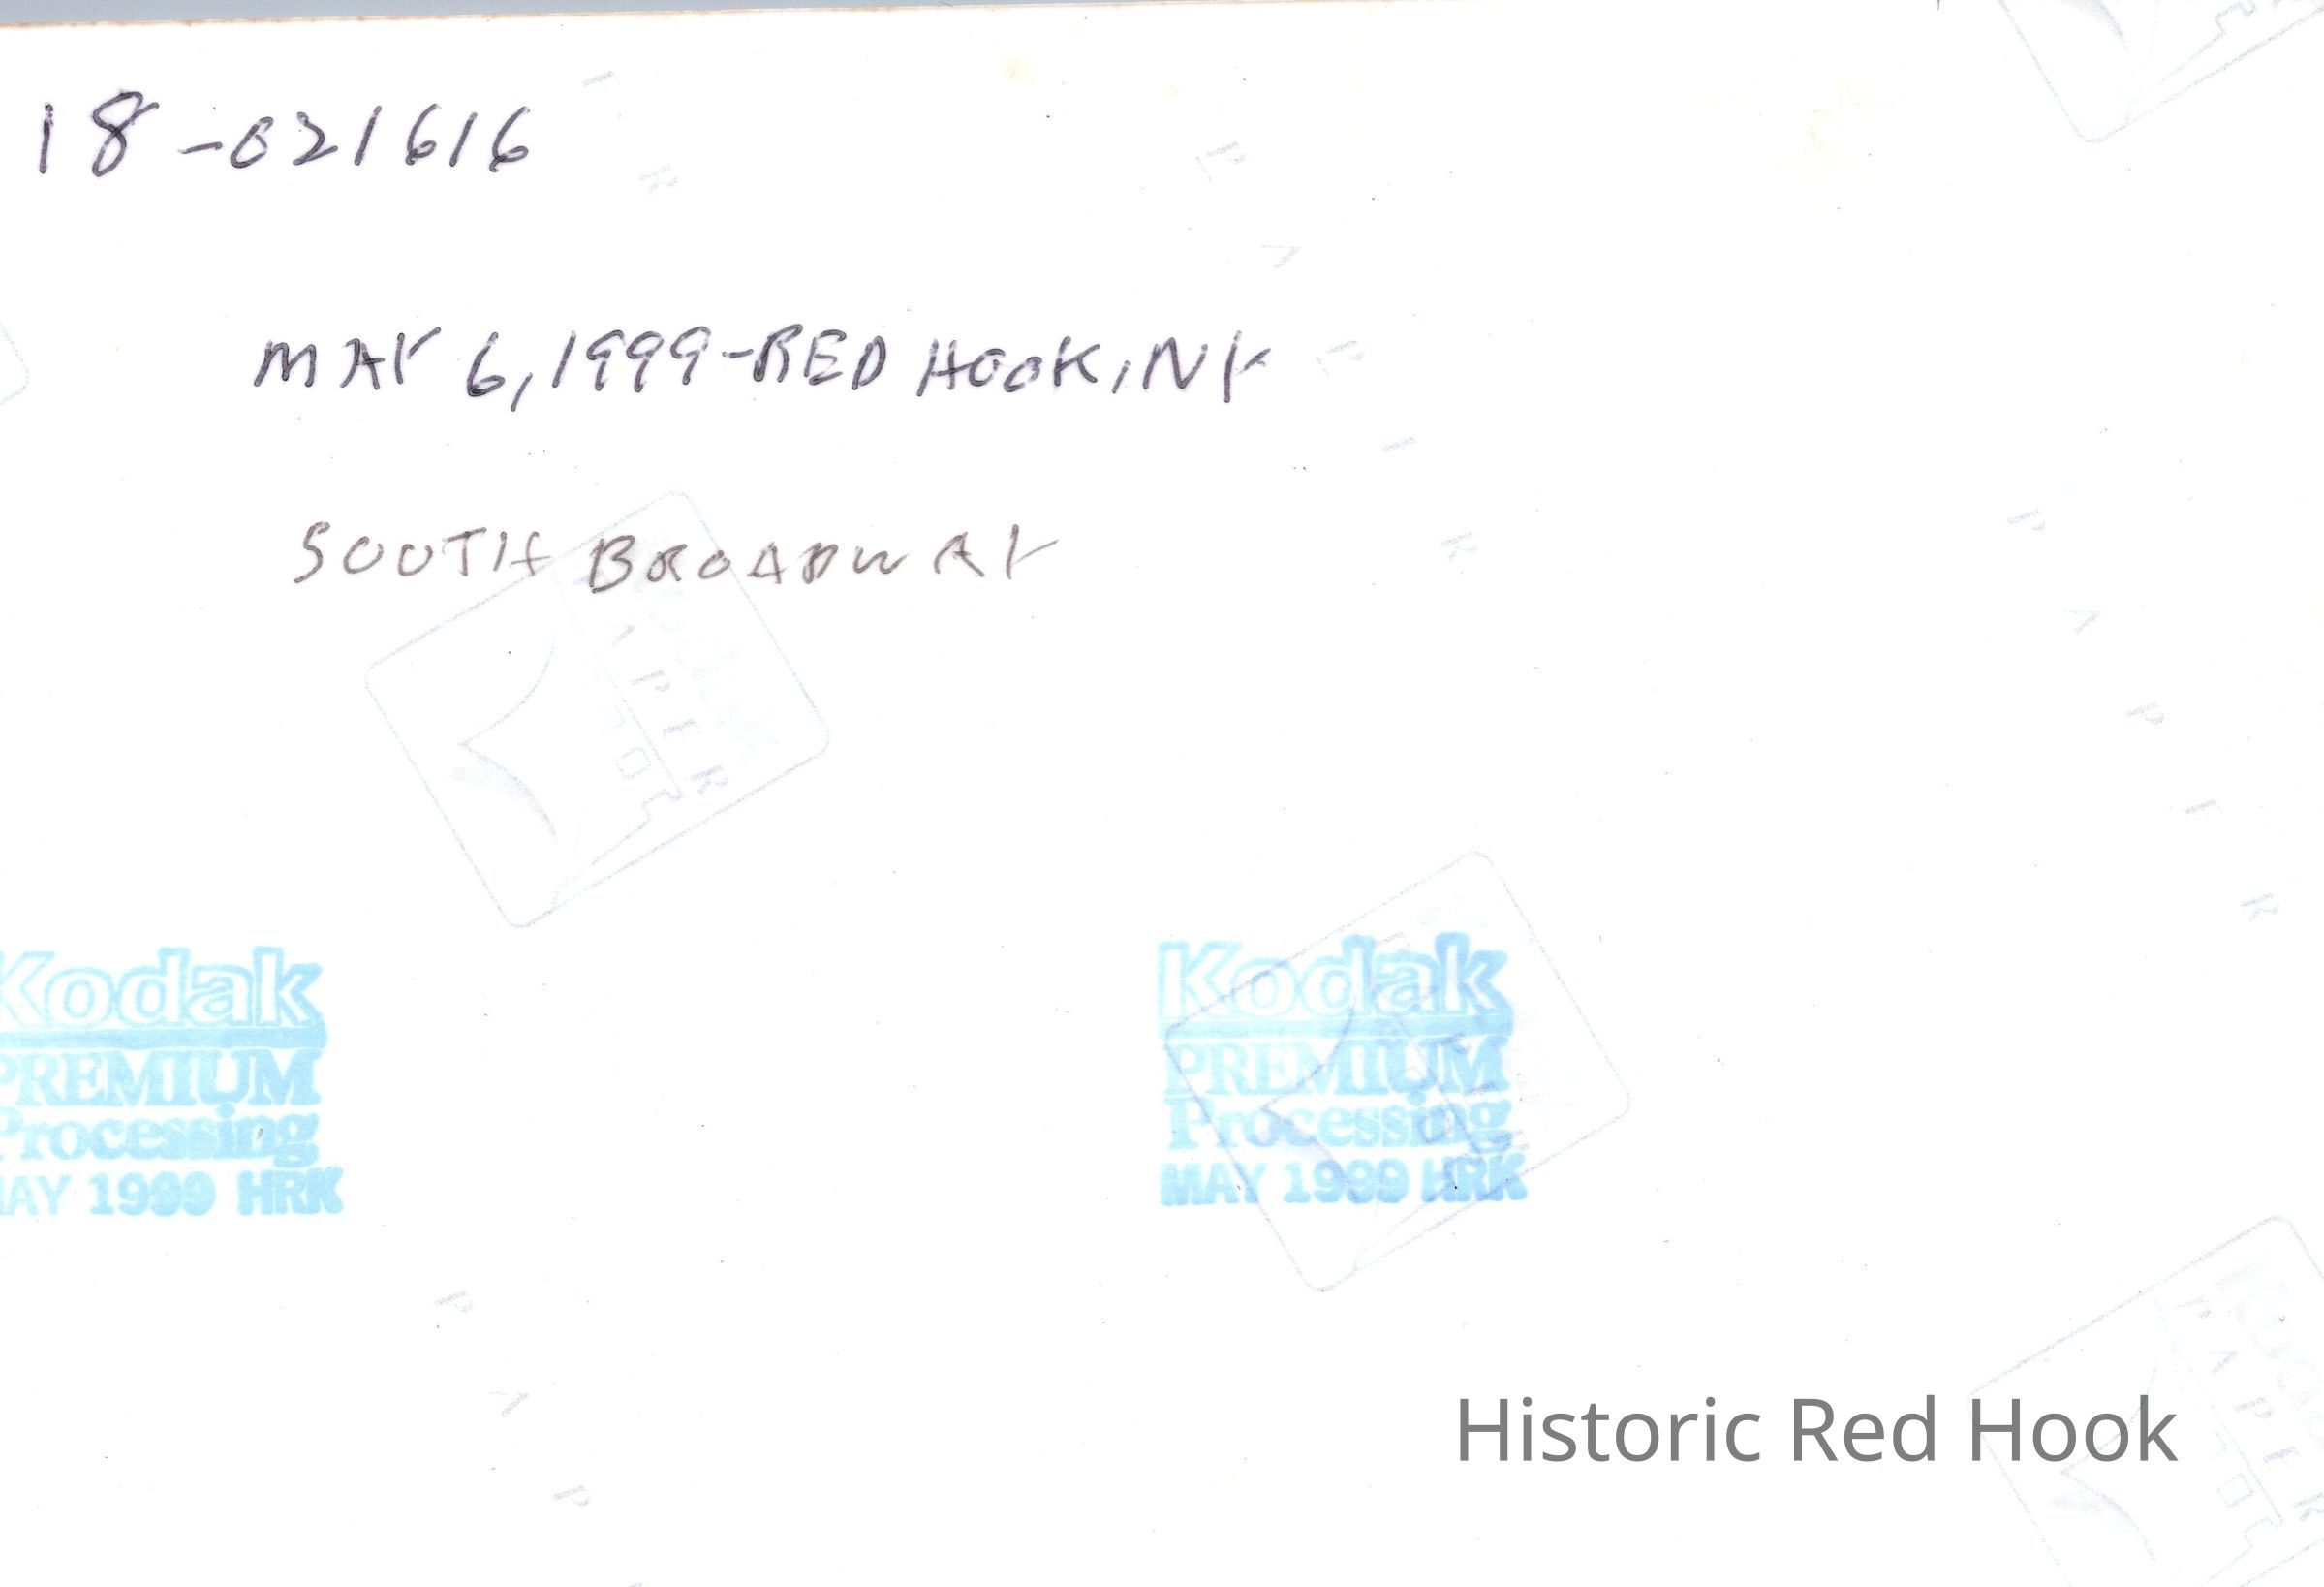 18-021616
MAY 6, 1999-RED HOOK, NY
SOUTH BROADWAY
Kodak
PREMIUM
Processing
MAY 1999 HRK
Kodak
PREMIUM
Processing
MAY 1999 HRK
PAPER
PAPER
Historic Red Hook